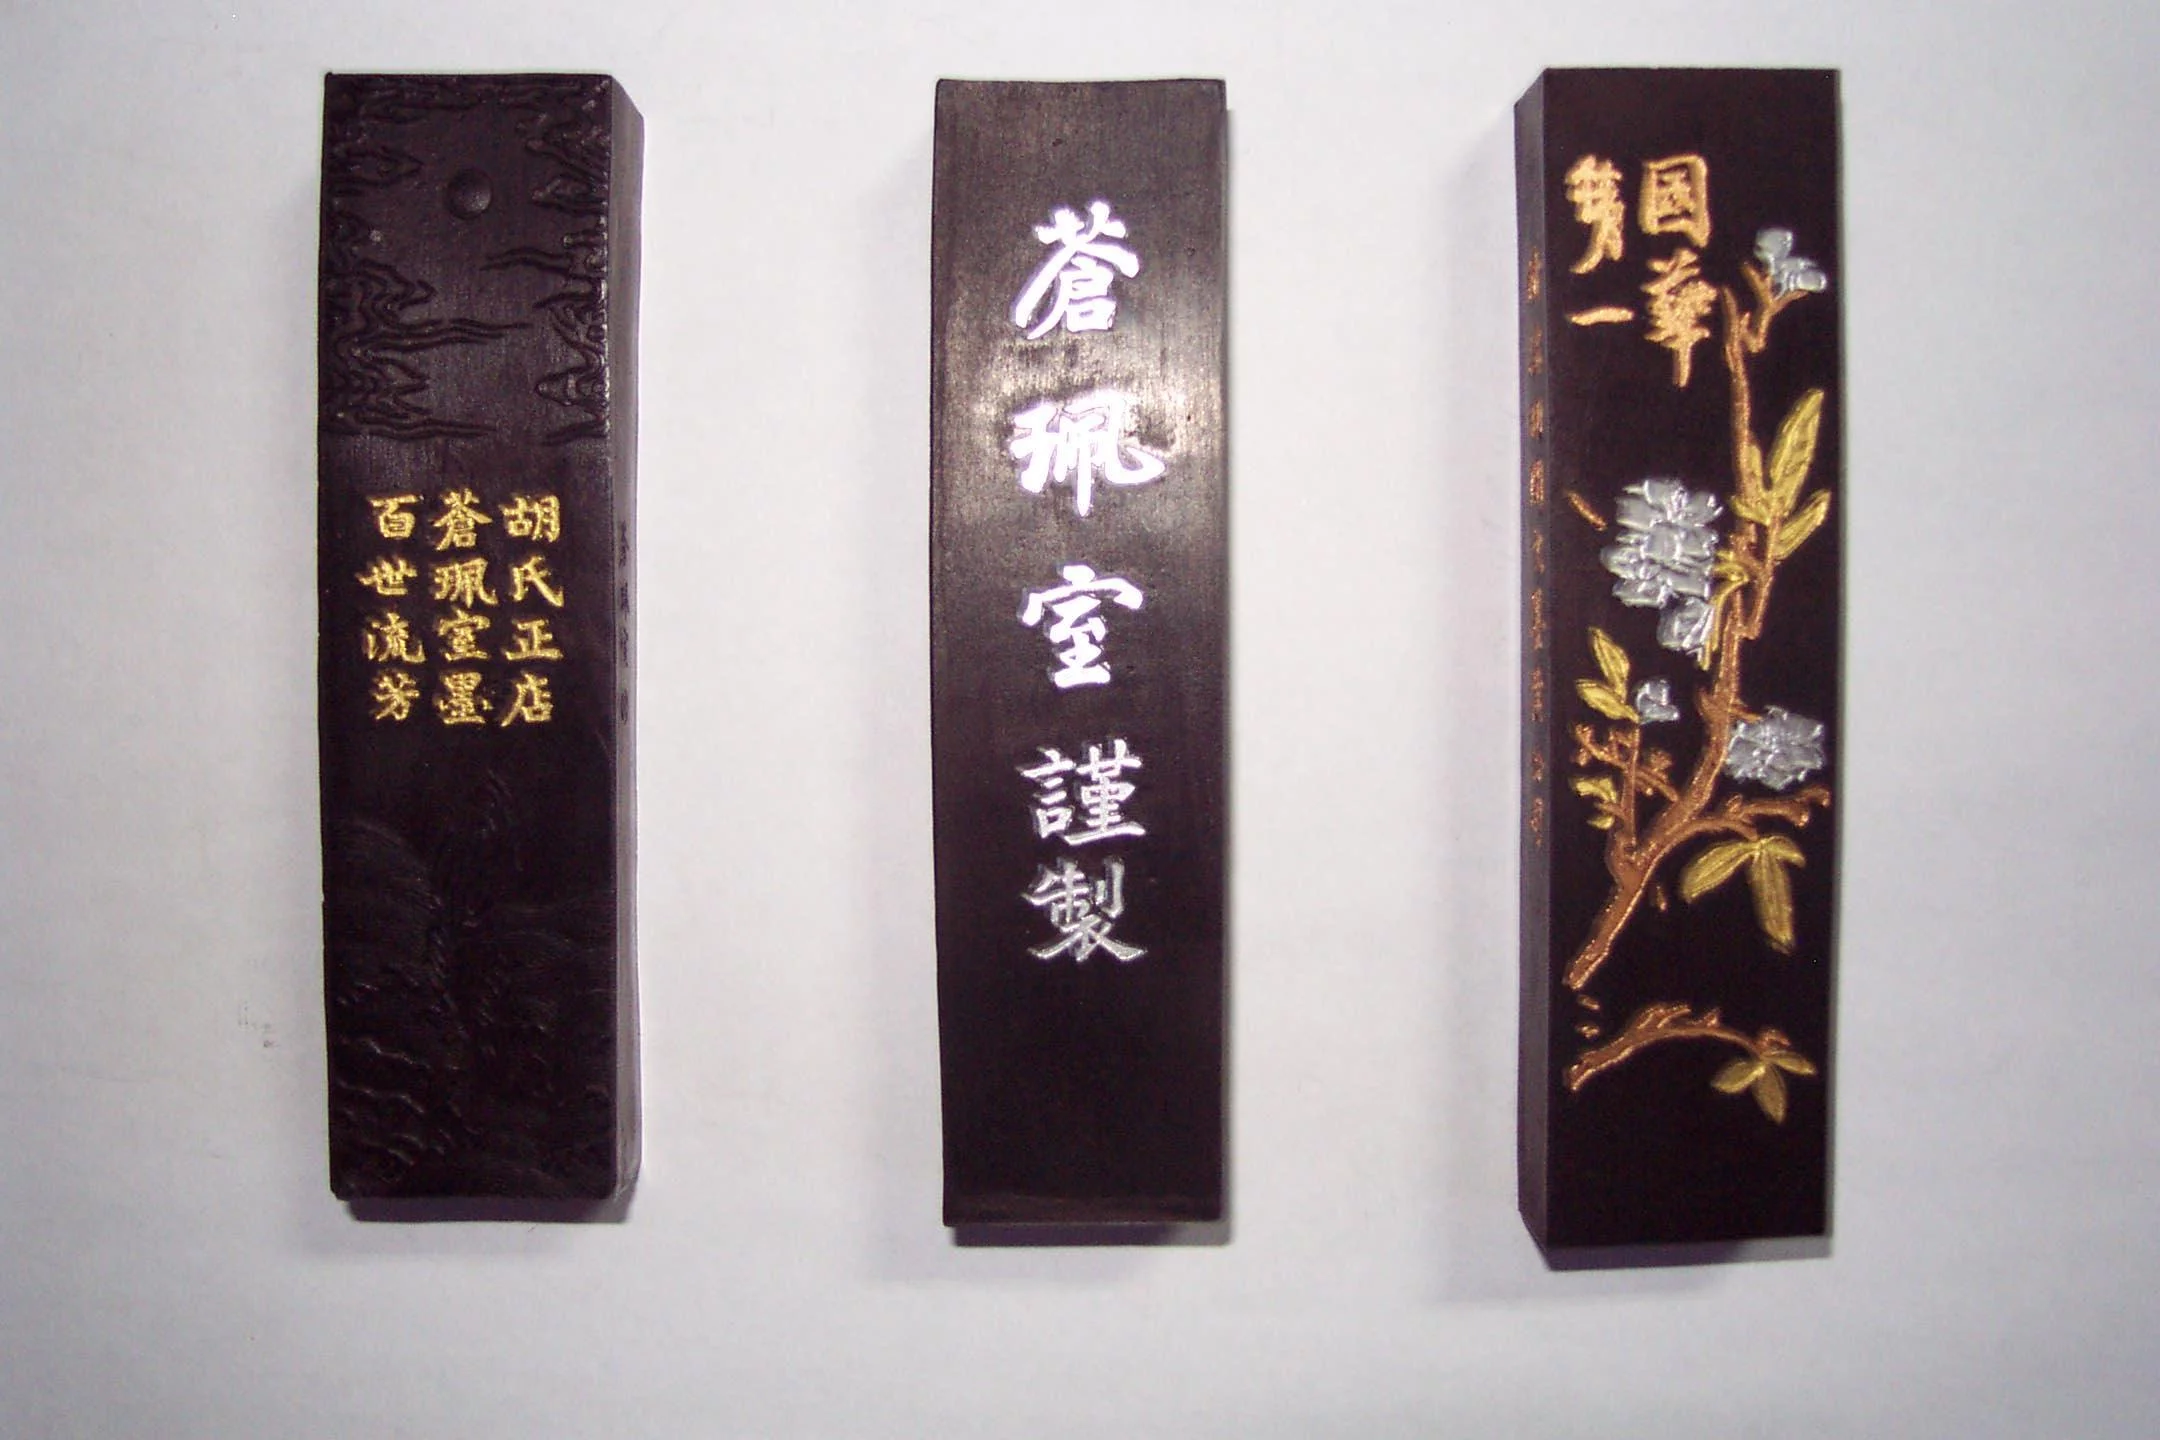 胡氏正店
蒼珮室墨
百世流芳
蒼珮室謹製
國華
第一